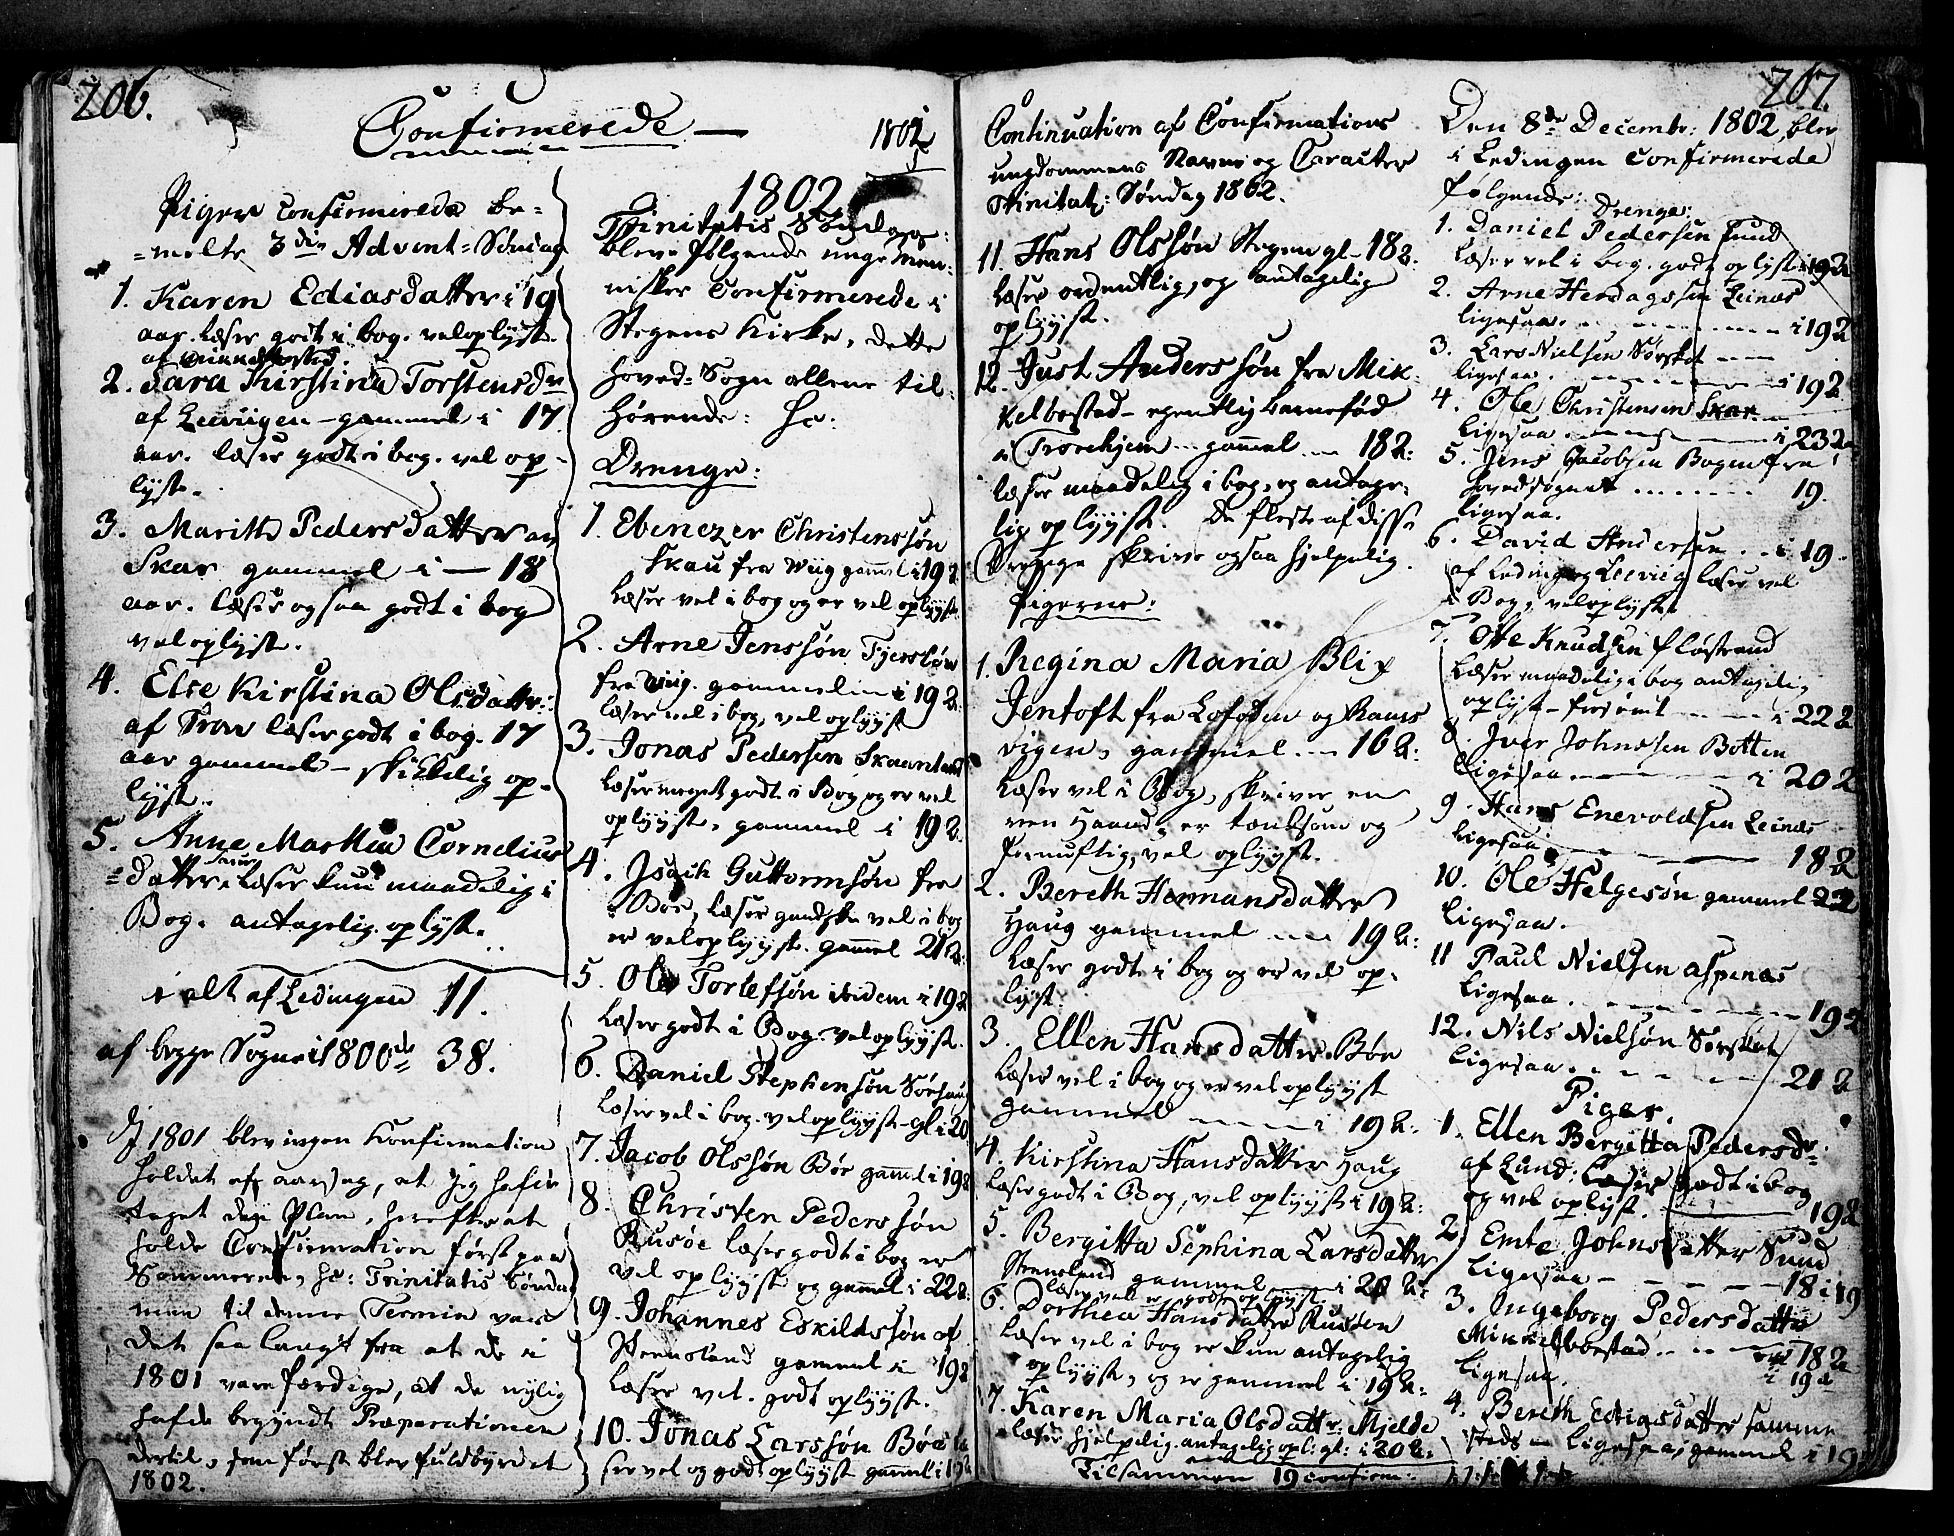 206.
Confirmerede —
1802
Piger Confirmerede be=
=melte 3die Advent=Søndag
1. Karen Ediasdatter i 19
aar. læser godt i bog. vel oplyst.
2. Sara Kirstina Torstensdr
af Leevigen – gammel i 17
aar. læser godt i bog. vel op-
lyst.
3. Marith Pedersdatter
Skar gammel i — 18
aar. læser ogsaa godt i bog
vel oplyst.
4. Else Kirstina Olsdattr:
af læser godt i bog. 17
aar gammel – skikkelig op-
lyst.
5. Anne Martha Cornelius
=datter læser kun maadelig i
Bog. antagelig oplyst.
i alt af Lødingen 11.
af begge Sogne i 1800de 38.
I 1801 blev ingen Confirmation
holdet af aarsag, at jeg hafde
taget den Plan, herefter at
holde Confirmation først paa
Sommeren, hc: Trinitatis Søndag
men til denne Termin var
det saa langt fra at de i
1801 vare færdige, at de nylig
hafde begyndt Præparationen
dertil, som først blev fuldbyrdet
1802.
1802
Trinitatis Søndag
bleve følgende unge Men-
nisker Confirmerede i
Stegens Kirke, dette
Hoved=Sogn allene til-
hørende: hc:
Drenge:
1. Ebenezer Christenssøn
Skau fra Wiig gaml i 19 a.
læser vel i bog og er vel oplyyst.
2. Arne Jenssøn
fra Wiig. gammel i 19 a.
læser vel i bog, vel oplyyst
3. Jonas Pedersen Skaanland
læser meget godt i Bog og er vel
oplyyst, gammel i 19 a.
4. Isach Guttormsøn fra
Bøe, læser gandske vel i bog
er vel oplyyst. gammel 21 a.
5. Ole Tortefsøn ibidem i 19 a
læser godt i Bog. vel oplyyst.
6. Daniel Stephensøn
læser vel i bog. vel oplyyst - gl i 20
7. Jacob Olssøn Bøe gaml i 19 a
8. Christen Pederssøn
Rusøe læser godt i bog er
vel oplyyst og gamel i 22 a.
9. Johannes Eskildssøn af
Steensland gammel i 19 a
læser vel. godt oplyyst.
10. Jonas Larssøn Bøe læ
ser vel og godt oplyyst gamel i 19 a
207.
Continuation af Confirmations
ungdommens Navne og Caracter
Trinitat: Søndag 1802.
11. Hans Olssøn Stegen gl - 18 a.
læser ordentlig, og antagelig
oplyyst.
12. Just Anderssøn fra Mik-
kelbostad – egentlig barnefød
i Tronhjem gammel 18 a:
læser maadelig i bog, og antage-
lig oplyyst. De fleste af disse
Drenge skrive ogsaa hjelpelig.
Pigerne:
1. Regina Maria Blix
Jentoft fra Lofoden og Rams
vigen, gammel — 16 a:
læser vel i Bog, skriver en
reen Haand, er tænksom og
fornuftig, vel oplyyst.
2. Bereth Hermansdatter
Haug gammel — 19 a:
læser godt i bog og er vel op-
lyst.
3. Ellen Hansdatter Bøe
læser vel i bog og er vel oplyyst
gammel — i 19 a.
4. Kirstina Hansdatter Haug
læser godt i Bog, vel oplyyst i 19 a:
5. Bergitta Sephina Larsdatter
Steensland gammel i 20 a:
læser vel er godt oplyyst.
6. Dorthea Hansdatter Rusøen
læser vel i bog er kun antagelig
oplyyst, og er gammel i 19 a:
7. Karen Maria Olsdattr: Mjelde
læser hjelpelig. antagelig opl: gl: i 20 a:
Tilsammen 19 confirm:
Den 8de Decembr: 1802, blev
i Lødingen Confirmerede
følgende: Drenge:
1. Daniel Pedersen Lund
læser vel i bog. godt oplyst 19 a
2. Arne Herdagssen Leinæs
ligesaa. — i 19 a
3. Lars Nielsen Sørskot
ligesaa. — i 19 a
4. Ole Christensen Skar
ligesaa — i 23 a
5. Jens Jacobsen Bogen fra
Hovedsognet — 19.
ligesaa.
6. David Andersen — i 19.
af Lødingen Leevig læser vel
i Bog, vel oplyst.
7. Otte Knudsen Fløstrand
læser maadelig i bog antagelig
oplyst — i 22 a
8. Iver Johnssen Botten
ligesaa — i 20 a
9. Hans Enevoldsen Leinæs
ligesaa — 18 a
10. Ole Helgesøn gammel 22
ligesaa.
11 Paul Nielsen Aspenæs
ligesaa. — 19 a
12. Nils Nielsøn Sørskot
ligesaa. — 21 a
Piger.
1. Ellen Bergitta Pedersdr
af Lund: læser godt i bog
og vel oplyst. — 19 a
2. Emte Johnsdatter Sund
ligesaa — 18 i 19
3. Ingeborg Pedersdatter
Mikkelboestad — 18 a
ligesaa. i 19 a
4. Bereth Ediasdatter samme
steds — ligesaa, gammel i 19